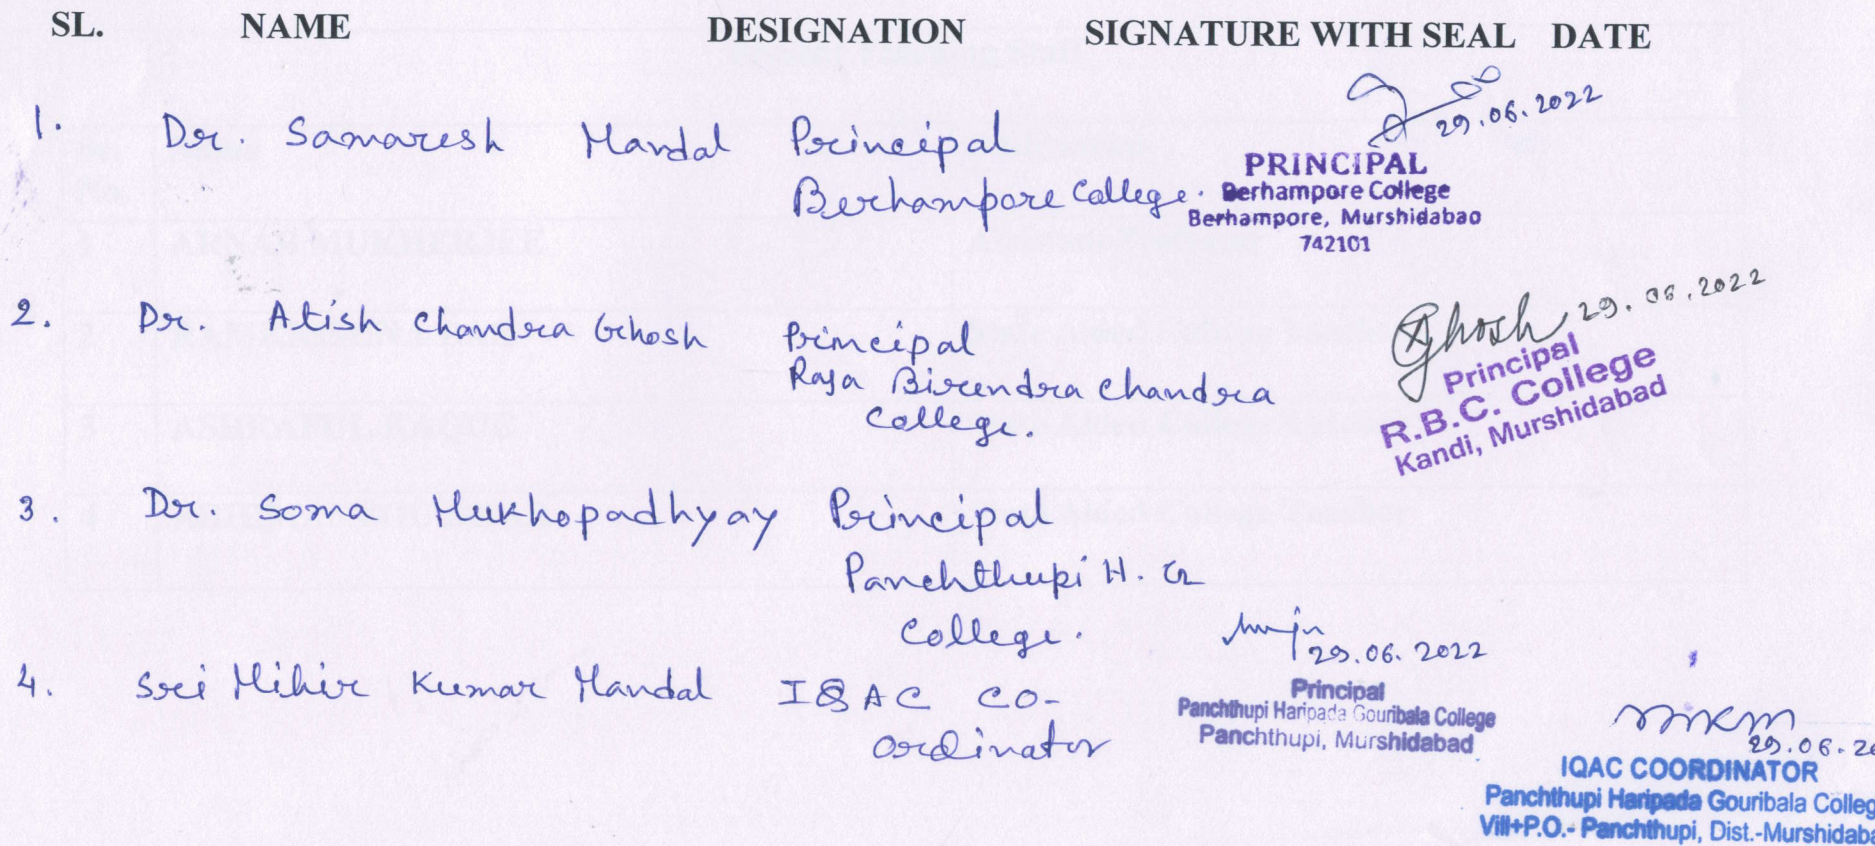 SL. NAME DESIGNATION SIGNATURE WITH SEAL DATE
1. Dr. Samaresh Mandal Principal
Berhampore College.
29.06.2022
PRINCIPAL
Berhampore College
Berhampore, Murshidabad
742101
2. Dr. Atish Chandra Ghosh Principal
Raja Birendra Chandra
College.
Ghosh 29.06.2022
Principal
R.B.C. College
Kandi, Murshidabad
3. Dr. Soma Mukhopadhyay Principal
Panchthupi H. G
College.
29.06.2022
Principal
Panchthupi Haripada Gouribala College
Panchthupi, Murshidabad
4. Sri Mihir Kumar Mandal IQAC CO-
ordinator
mkm
29.06.20
IQAC COORDINATOR
Panchthupi Haripada Gouribala Colleg
Vill+P.O.- Panchthupi, Dist.-Murshidaba
ARNAB MUKHERJEE